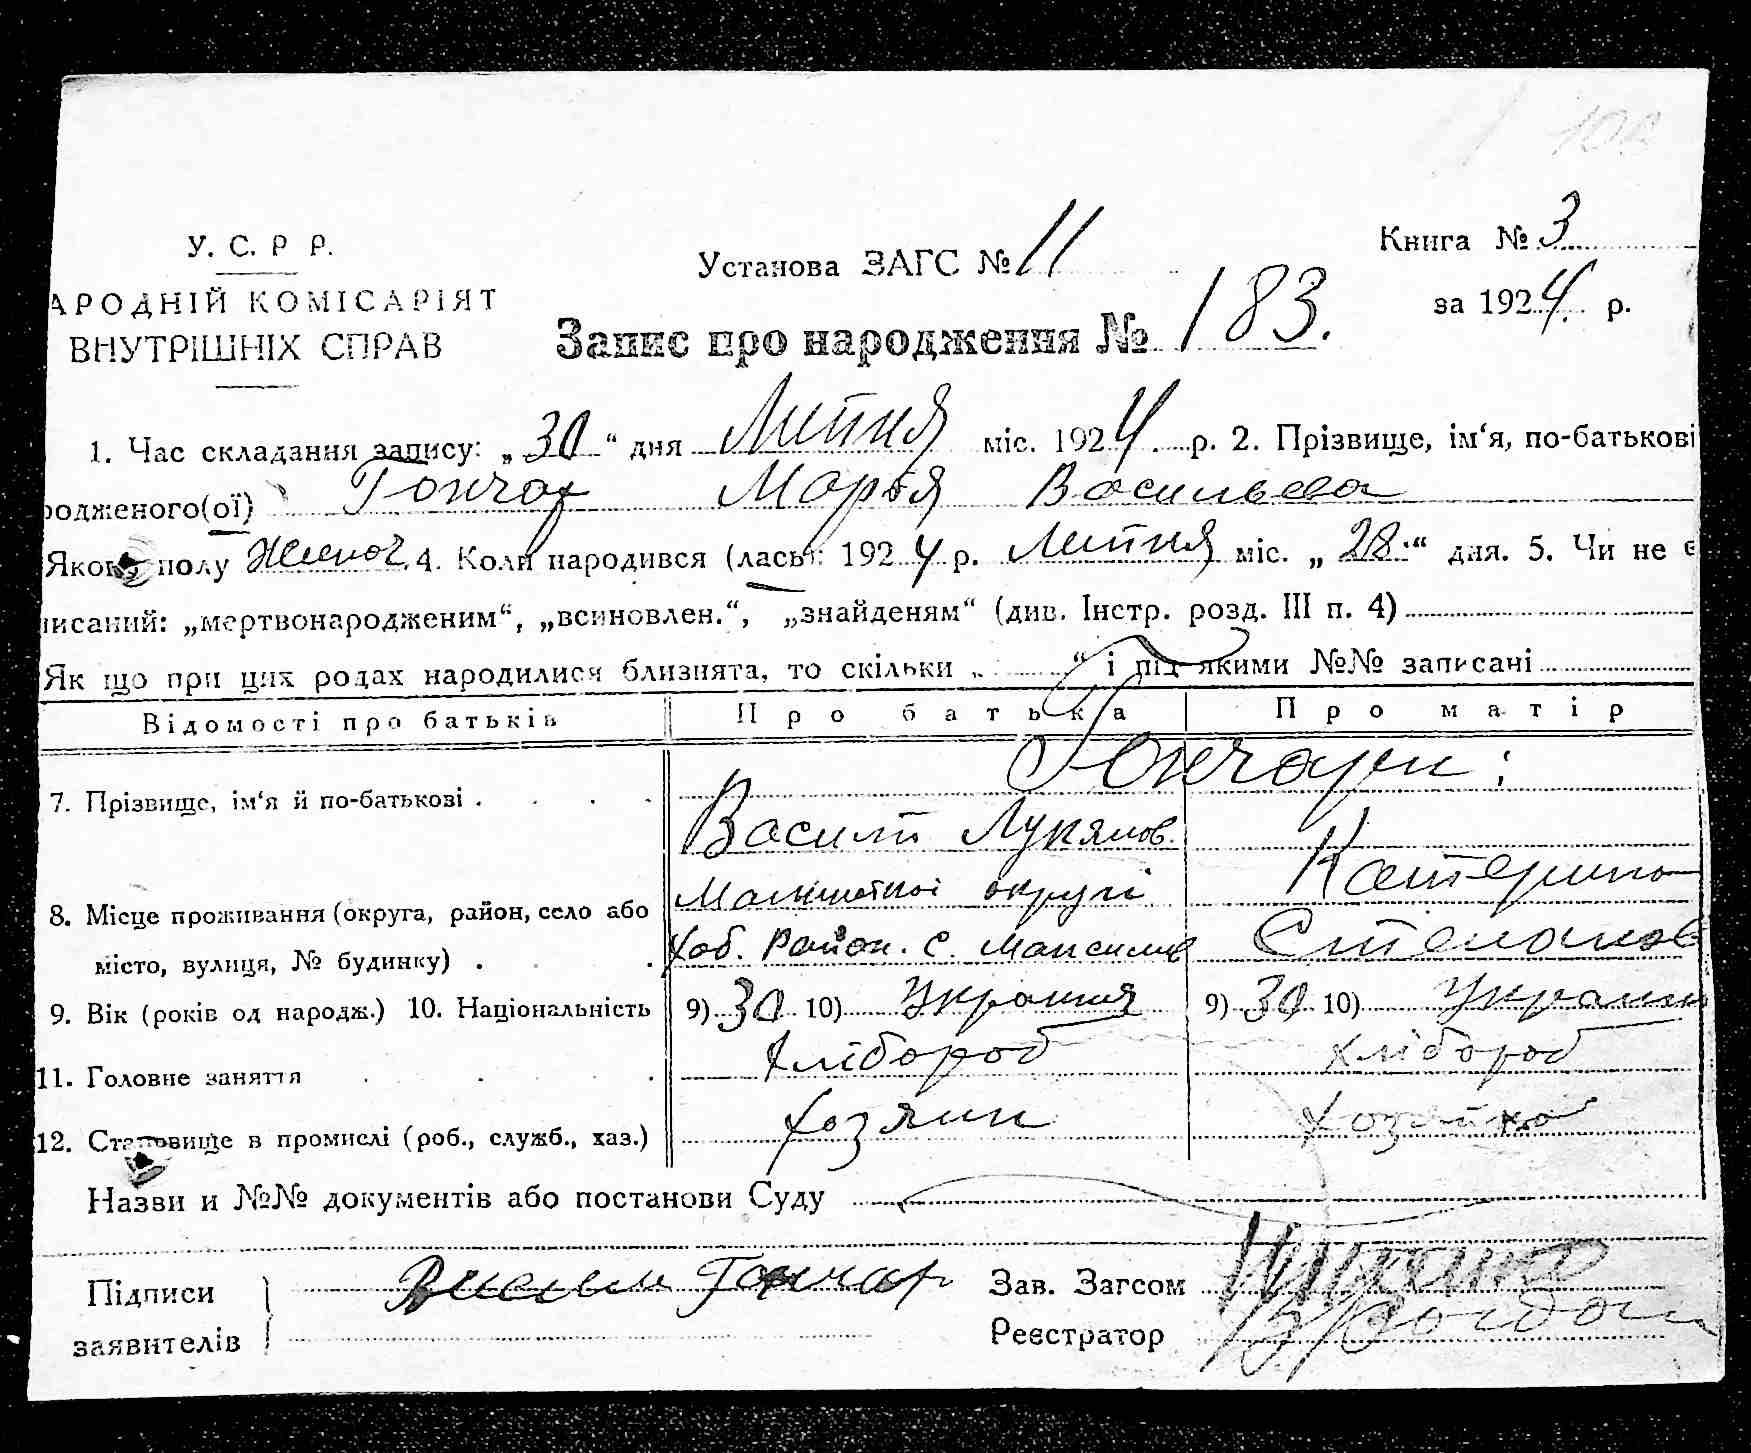 У. С. Р Р.
АРОДНІЙ КОМІСАРІЯТ
ВНУТРІШНІХ СПРАВ
Установа ЗАГС № 11
Книга № 3
за 1924 р.
Запис про народження № 183.
1. Час складання запису: „30“ дня Липня міс. 1924. р. 2. Прізвище, ім‘я, по-батькові
родженого(ої) Гончар Марья Васильева
Якого полу Жиноч. 4. Коли народився (лась): 1924 р. Липня міс. „28“ дня. 5. Чи не є
писаний: „мертвонародженим“, „всиновлен.“, „знайденям“ (див. Інстр. розд. III п. 4)
Як що при цих родах народилися близнята, то скільки „ “ і під якими №№ записані
Відомості про батьків Про батька Про матір
7. Прізвище, ім‘я й по-батькові Гончари:
Василь Лукянов. Катерина
8. Місце проживання (округа, район, село або місто, вулиця, № будинку) округі
Хоб. Район. С. Степанов
9. Вік (років од народж.) 10. Національність 9) 30 10) Украиня 9) 30 10) Украин
11. Головне заняття Хлібороб хлібороб
12. Становище в промислі (роб., служб., хаз.) Хозяин Хозяйка
Назви и №№ документів або постанови Суду
Підписи заявителів Гончар
Зав. Загсом
Реєстратор